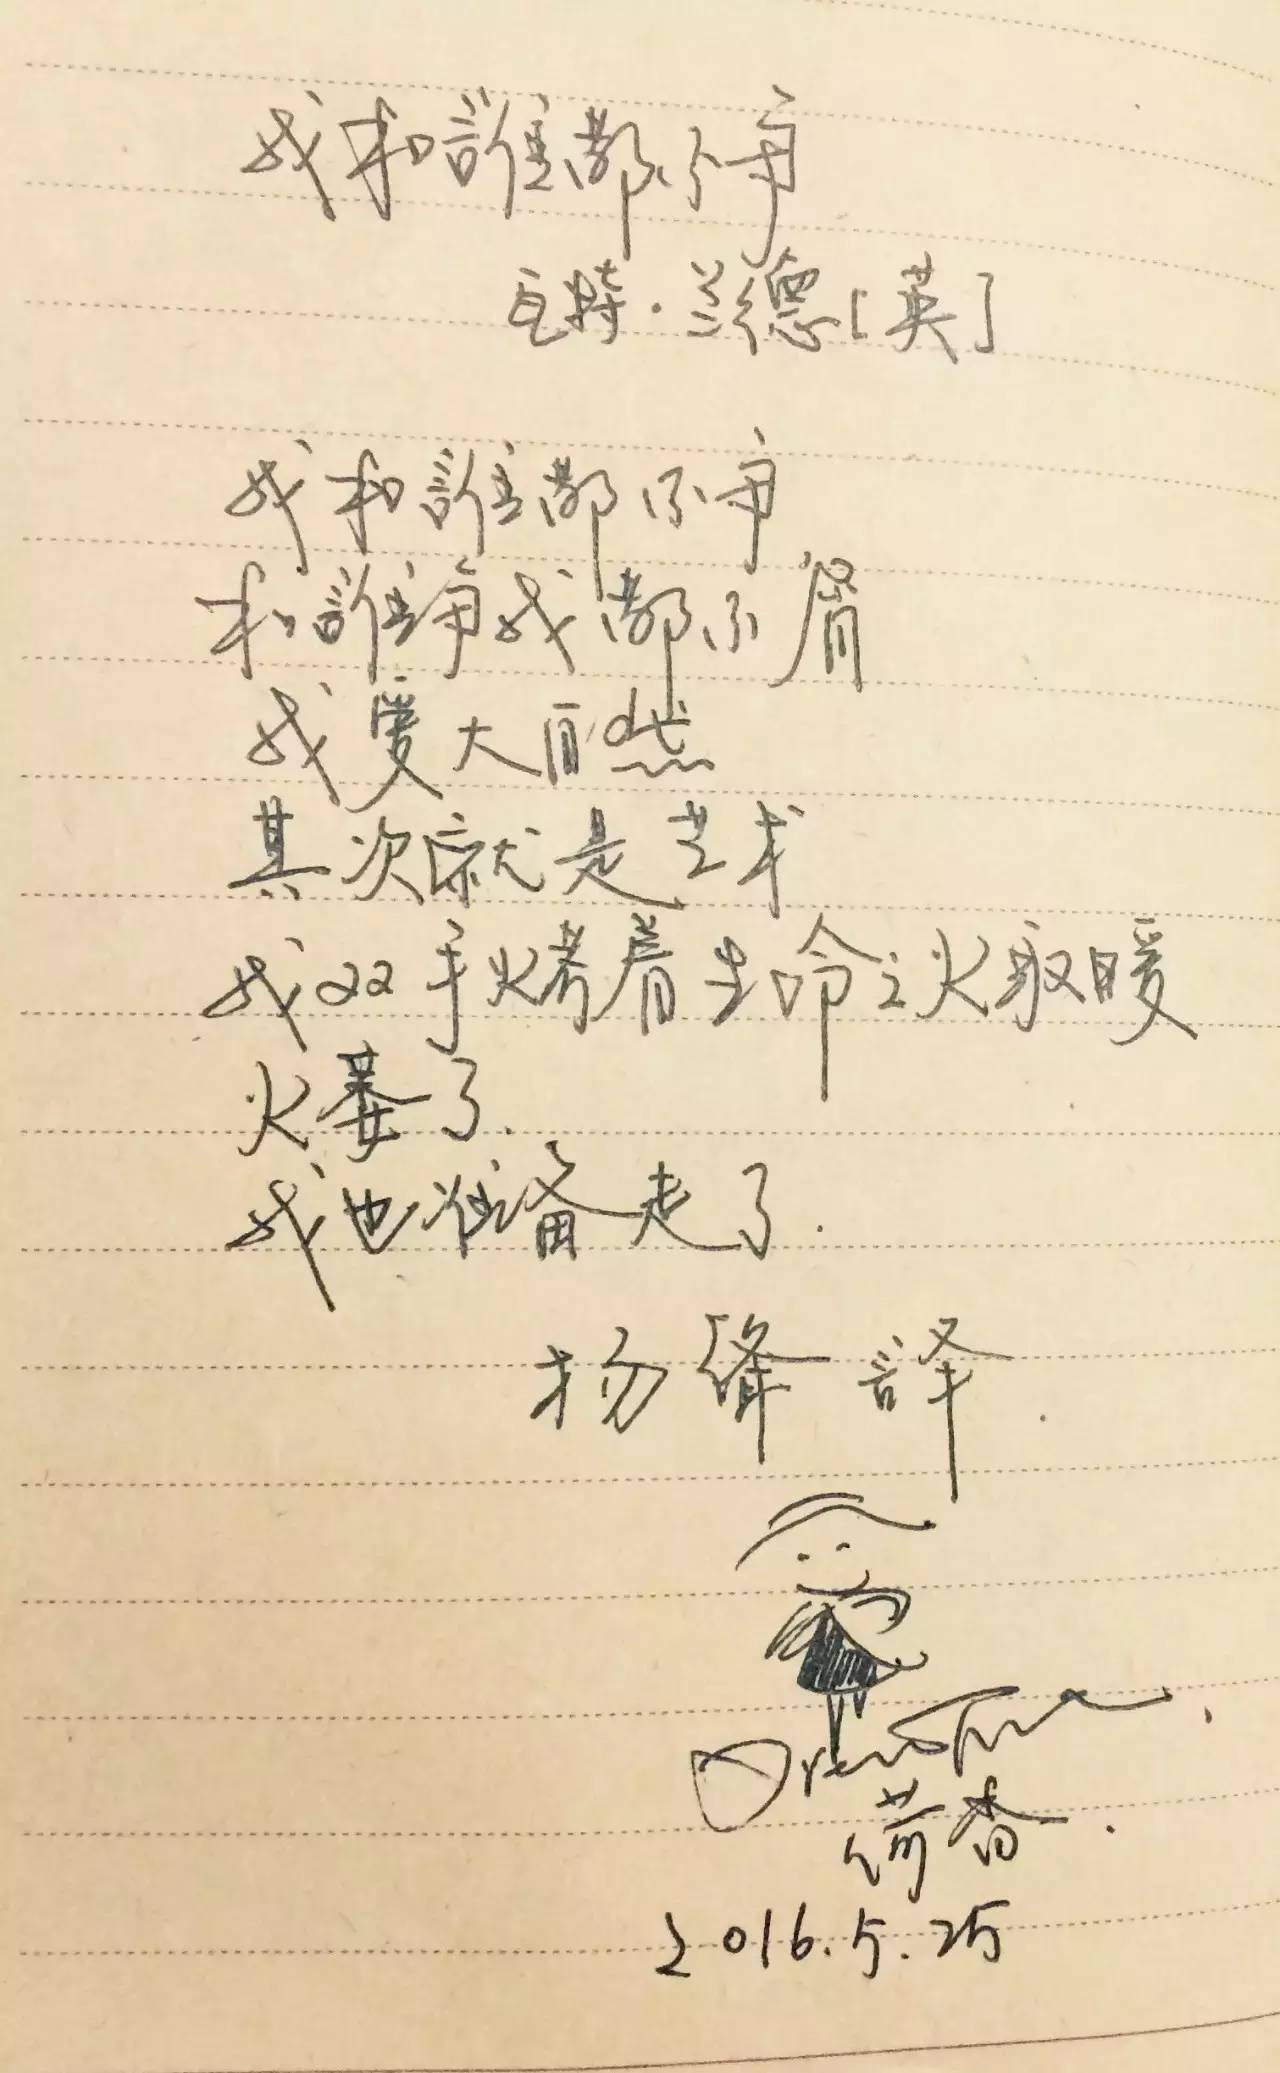 我和誰都不争
瓦特·兰德[英]
我和誰都不争
和誰争我都不屑
我爱大自然
其次就是艺术
我双手烤着生命之火取暖
火萎了.
我也准备走了.
杨绛 译.
荷香.
2016.5.25